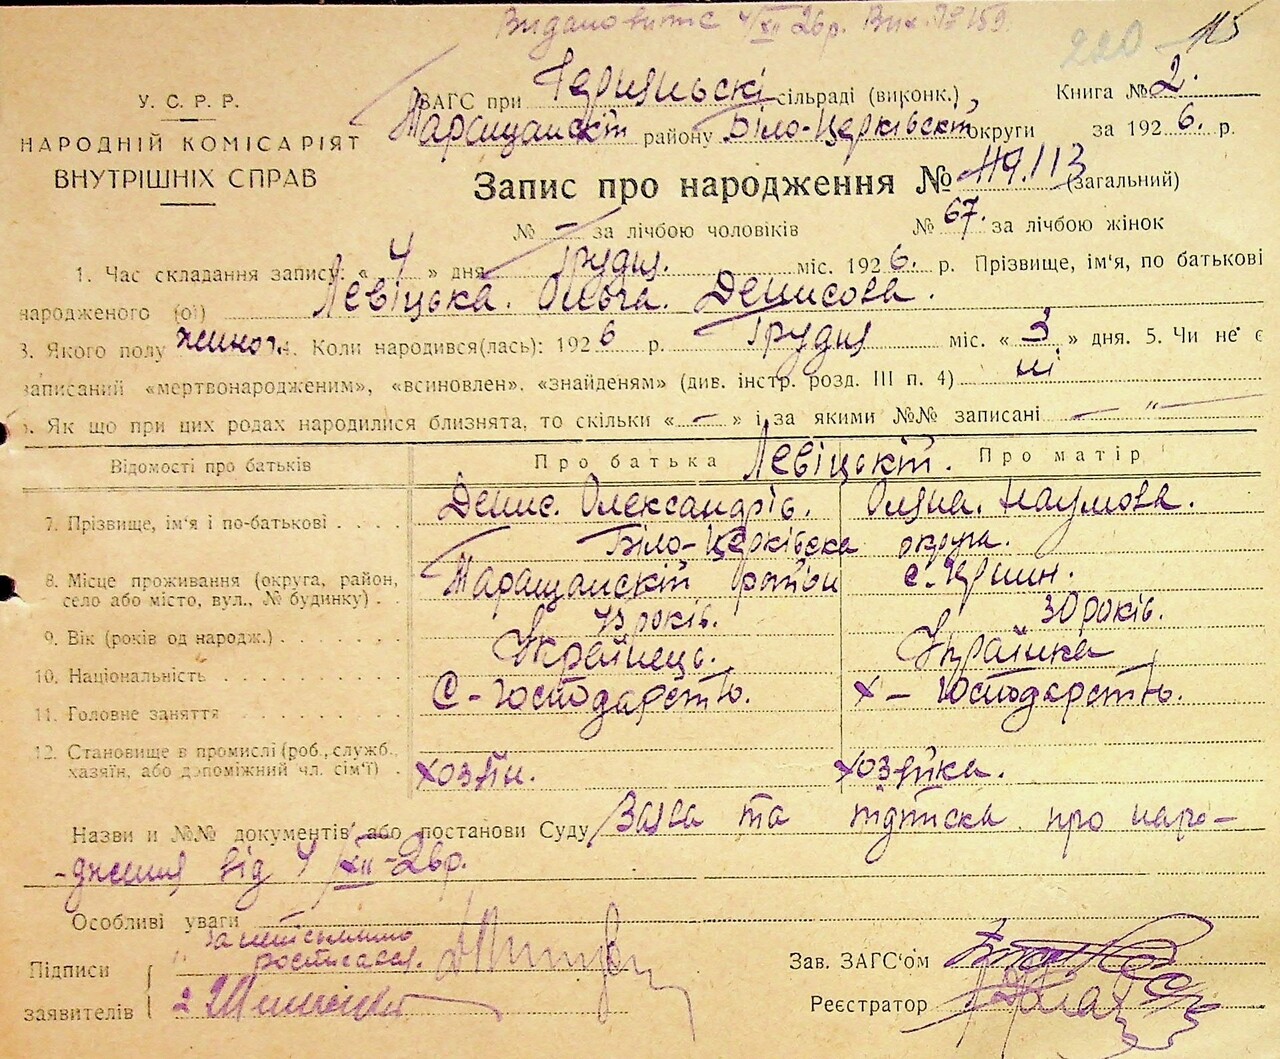 Видано витяг 4/XII 26р. Вих. № 159.
220 115
У. С. Р. Р.
НАРОДНІЙ КОМІСАРІЯТ
ВНУТРІШНІХ СПРАВ
ЗАГС при сільраді (виконк.), Книга № 2.
Таращанскій району Біло-Церківскій округи за 1926. р.
Запис про народження № 119.113 (загальний)
№ — за лічбою чоловіків № 67. за лічбою жінок
1. Час складання запису: « 4 » дня Грудня. міс. 1926. р. Прізвище, ім'я, по батькові
народженого (ої) Левіцька. Ольга. Денисова.
3. Якого полу жіноч. 4. Коли народився(лась): 1926 р. Грудня міс. « 3 » дня. 5. Чи не є
записаний «мертвонародженим», «всиновлен», «знайденям» (див. інстр. розд. III п. 4) ні
6. Як що при цих родах народилися близнята, то скільки « — » і за якими №№ записані — " —
Відомості про батьків Про батька Левіцькій. Про матір
7. Прізвище, ім'я і по-батькові . . . . Денис. Олександрів. Оляна. Наумова.
Біло-Церківска округа.
8. Місце проживання (округа, район, село або місто, вул., № будинку) . Таращанскій район с.
9. Вік (років од народж.) . . . . . . . років. 30 років.
10. Національність . . . . . . . . . . Українець. Українка
11. Головне заняття . . . . . . . . . С-господарство. Х-господарство.
12. Становище в промислі (роб., служб., хазяїн, або допоміжний чл. сім'ї) . хозяїн. хозяйка.
Назви и №№ документів або постанови Суду Заява та підписка про наро-
-дження від 4/XII-26р.
Особливі уваги
за неписьминно
росписався.
Підписи
заявителів 2
Зав. ЗАГС'ом
Реєстратор